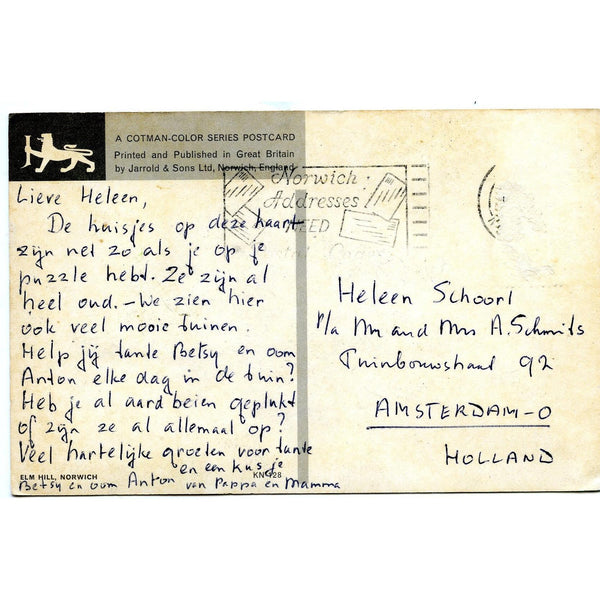 A COTMAN-COLOR SERIES POSTCARD
Printed and Published in Great Britain
by Jarrold & Sons Ltd, Norwich, England
Norwich
Addresses
NEED
Lieve Heleen,
De huisjes op deze kaart
zijn net zo als je op je
puzzle hebt. Ze zijn al
heel oud. - We zien hier
ook veel mooie tuinen.
Help jij tante Betsy en oom
Anton elke dag in de tuin?
Heb je al aardbeien geplukt
of zijn ze al allemaal op?
Veel hartelijke groeten voor tante
Betsy en oom Anton en een kus je
van Pappa en Mamma
ELM HILL, NORWICH
Heleen Schoorl
p/a Mr and Mrs A. Schmits
Tuinbouwstraat 92
AMSTERDAM-O
HOLLAND